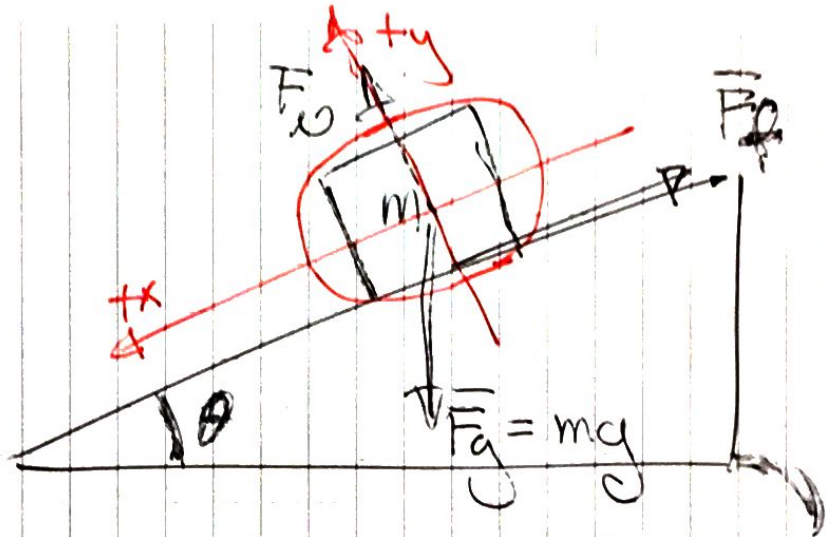 +y
F̅_N
F̅_f
m
+x
θ
F̅_g = mg